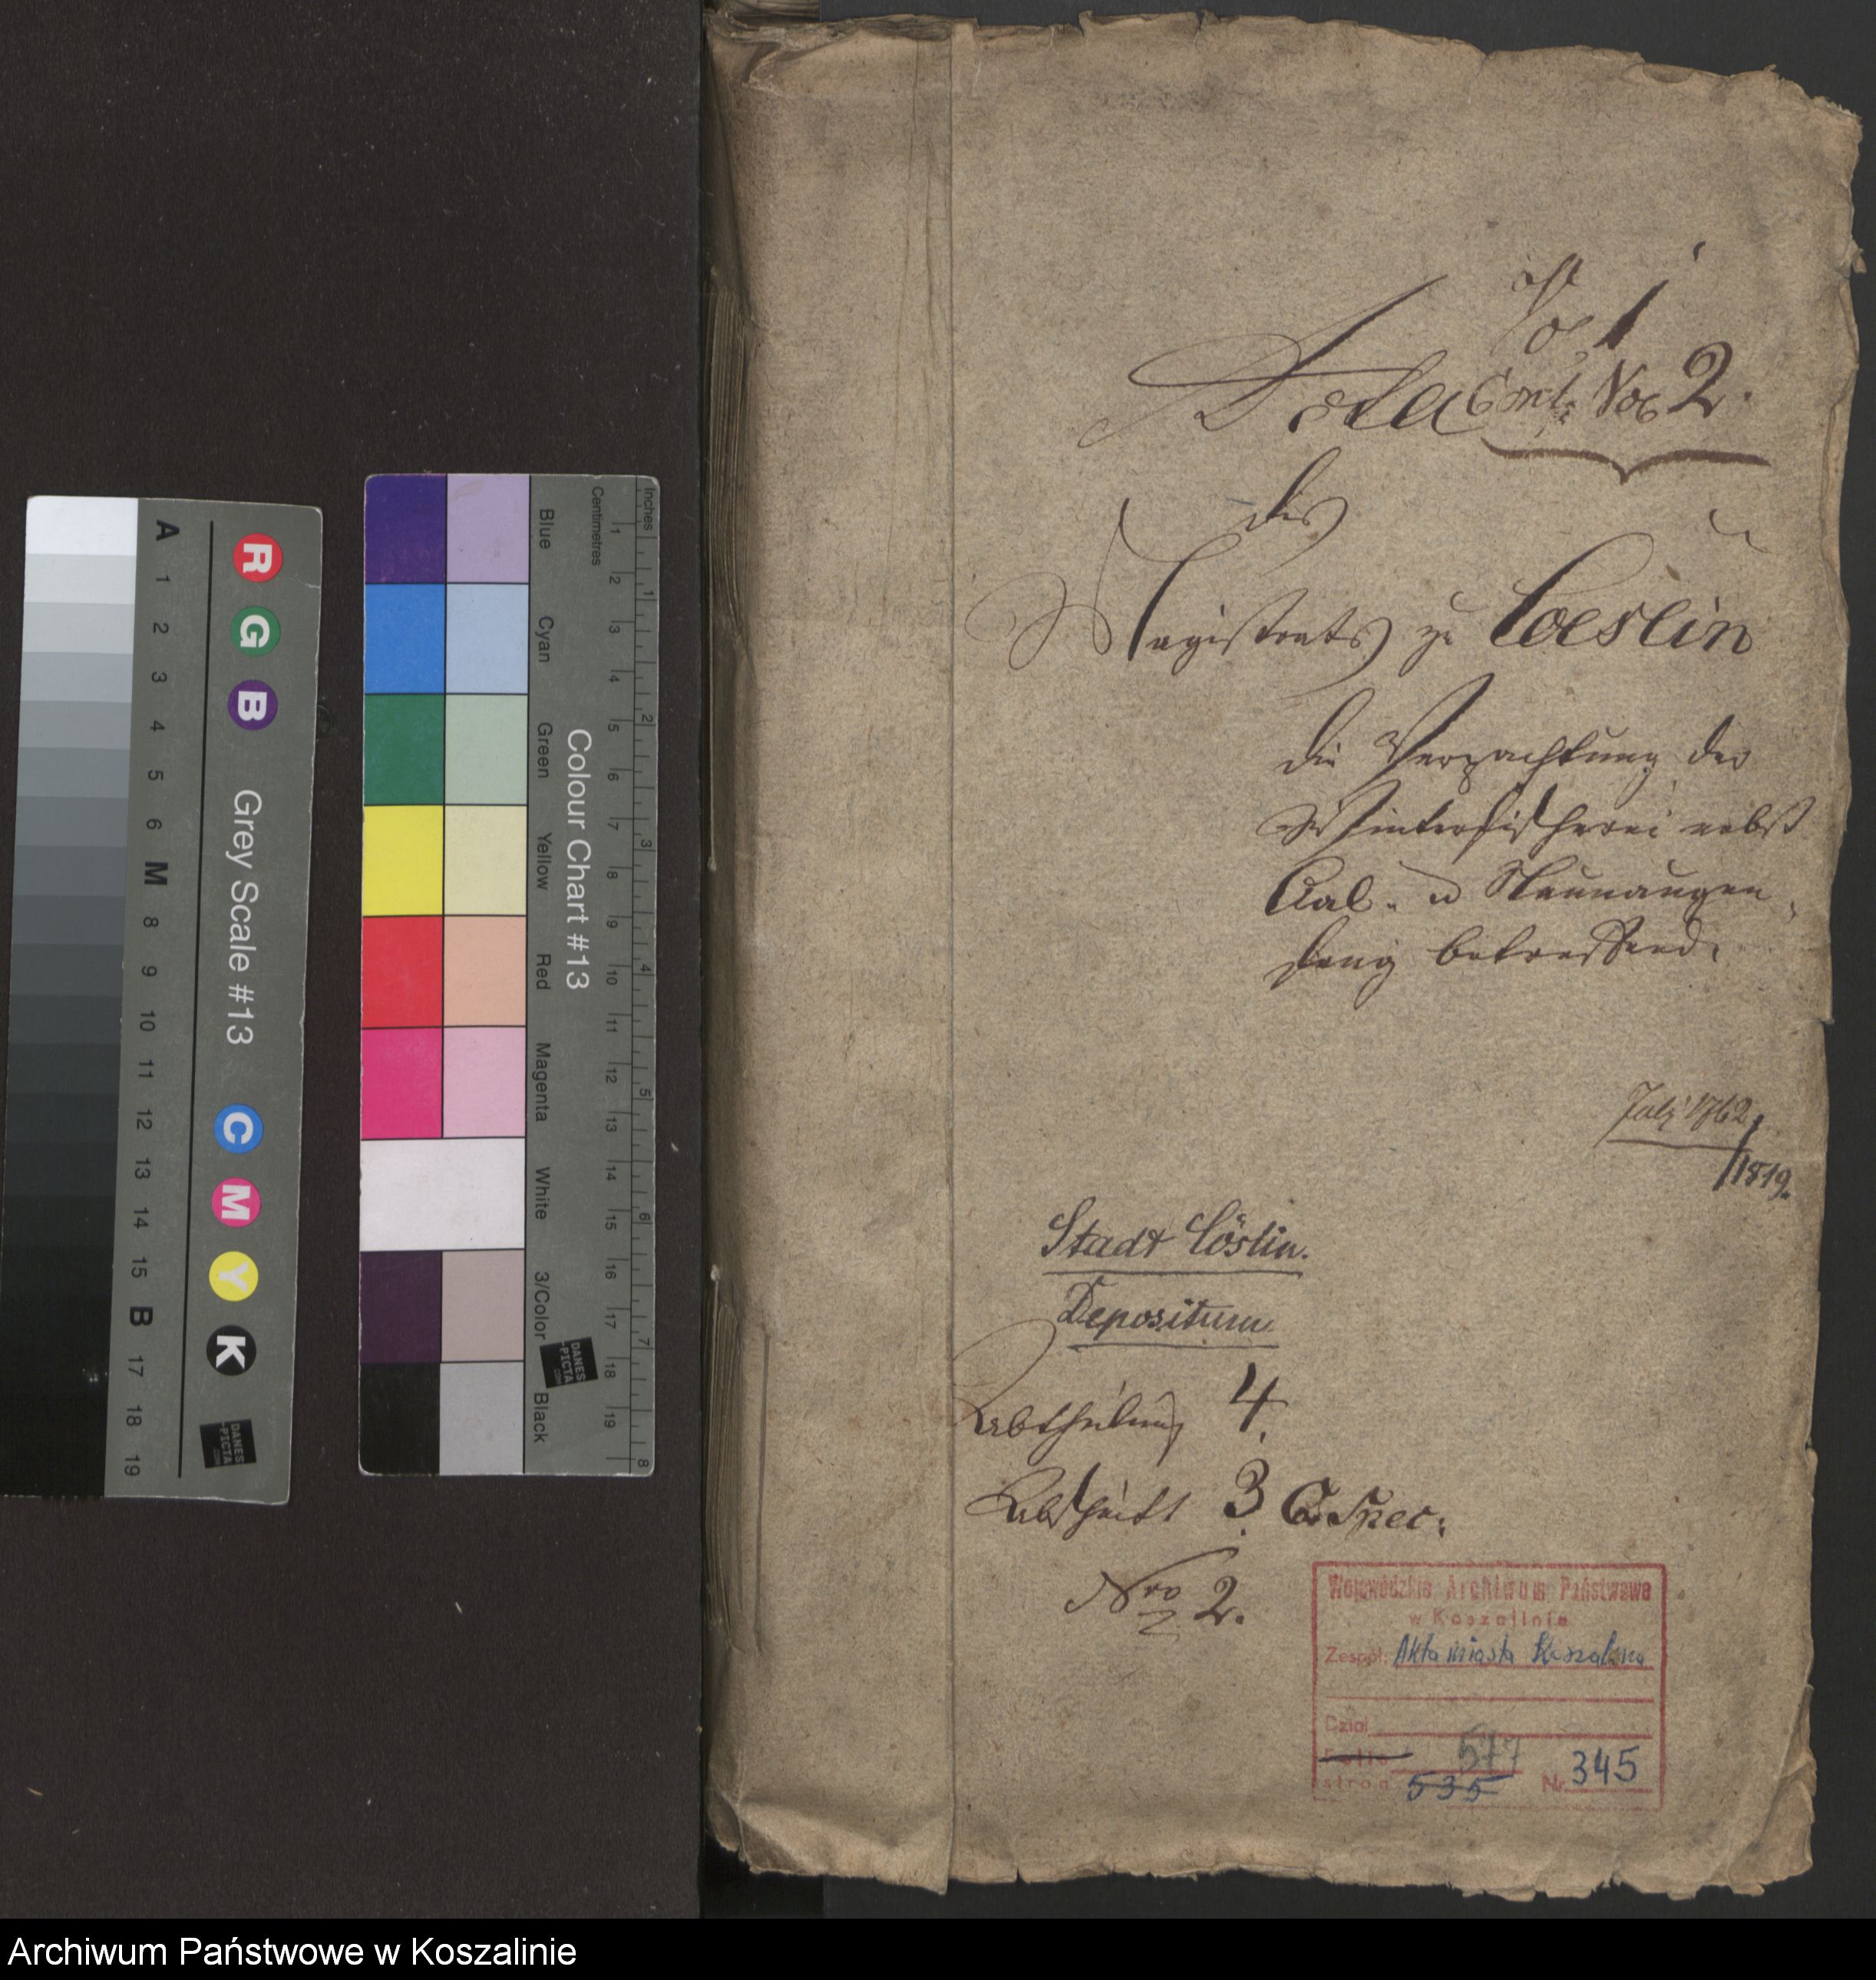 Vol 1
Acta Cont: Vol 2.
des
Magistrats zu Coeslin
die Verpachtung der
Winterfischerei nebst
Aal- u Neunaugen-
fang betreffend.
July 1762
1819.
Stadt Cöslin.
Depositum
Abtheilung 4.
Abschnitt 3 Spec:
Nro 2.
Wojewódzkie Archiwum Państwowe
w Koszalinie
Zespół: Akta miasta Koszalina
Dział
577
stron 535 Nr. 345
A 1 2 3 4 5 6 M 8 9 10 11 12 13 14 15 B 17 18 19
R G B Grey Scale #13 C M Y K
DANES
-PICTA
.COM
Blue Cyan Green Yellow Red Magenta White 3/Color Black
Colour Chart #13
DANES
-PICTA
.COM
Centimetres 1 2 3 4 5 6 7 8 9 10 11 12 13 14 15 16 17 18 19
Inches 1 2 3 4 5 6 7 8
Archiwum Państwowe w Koszalinie